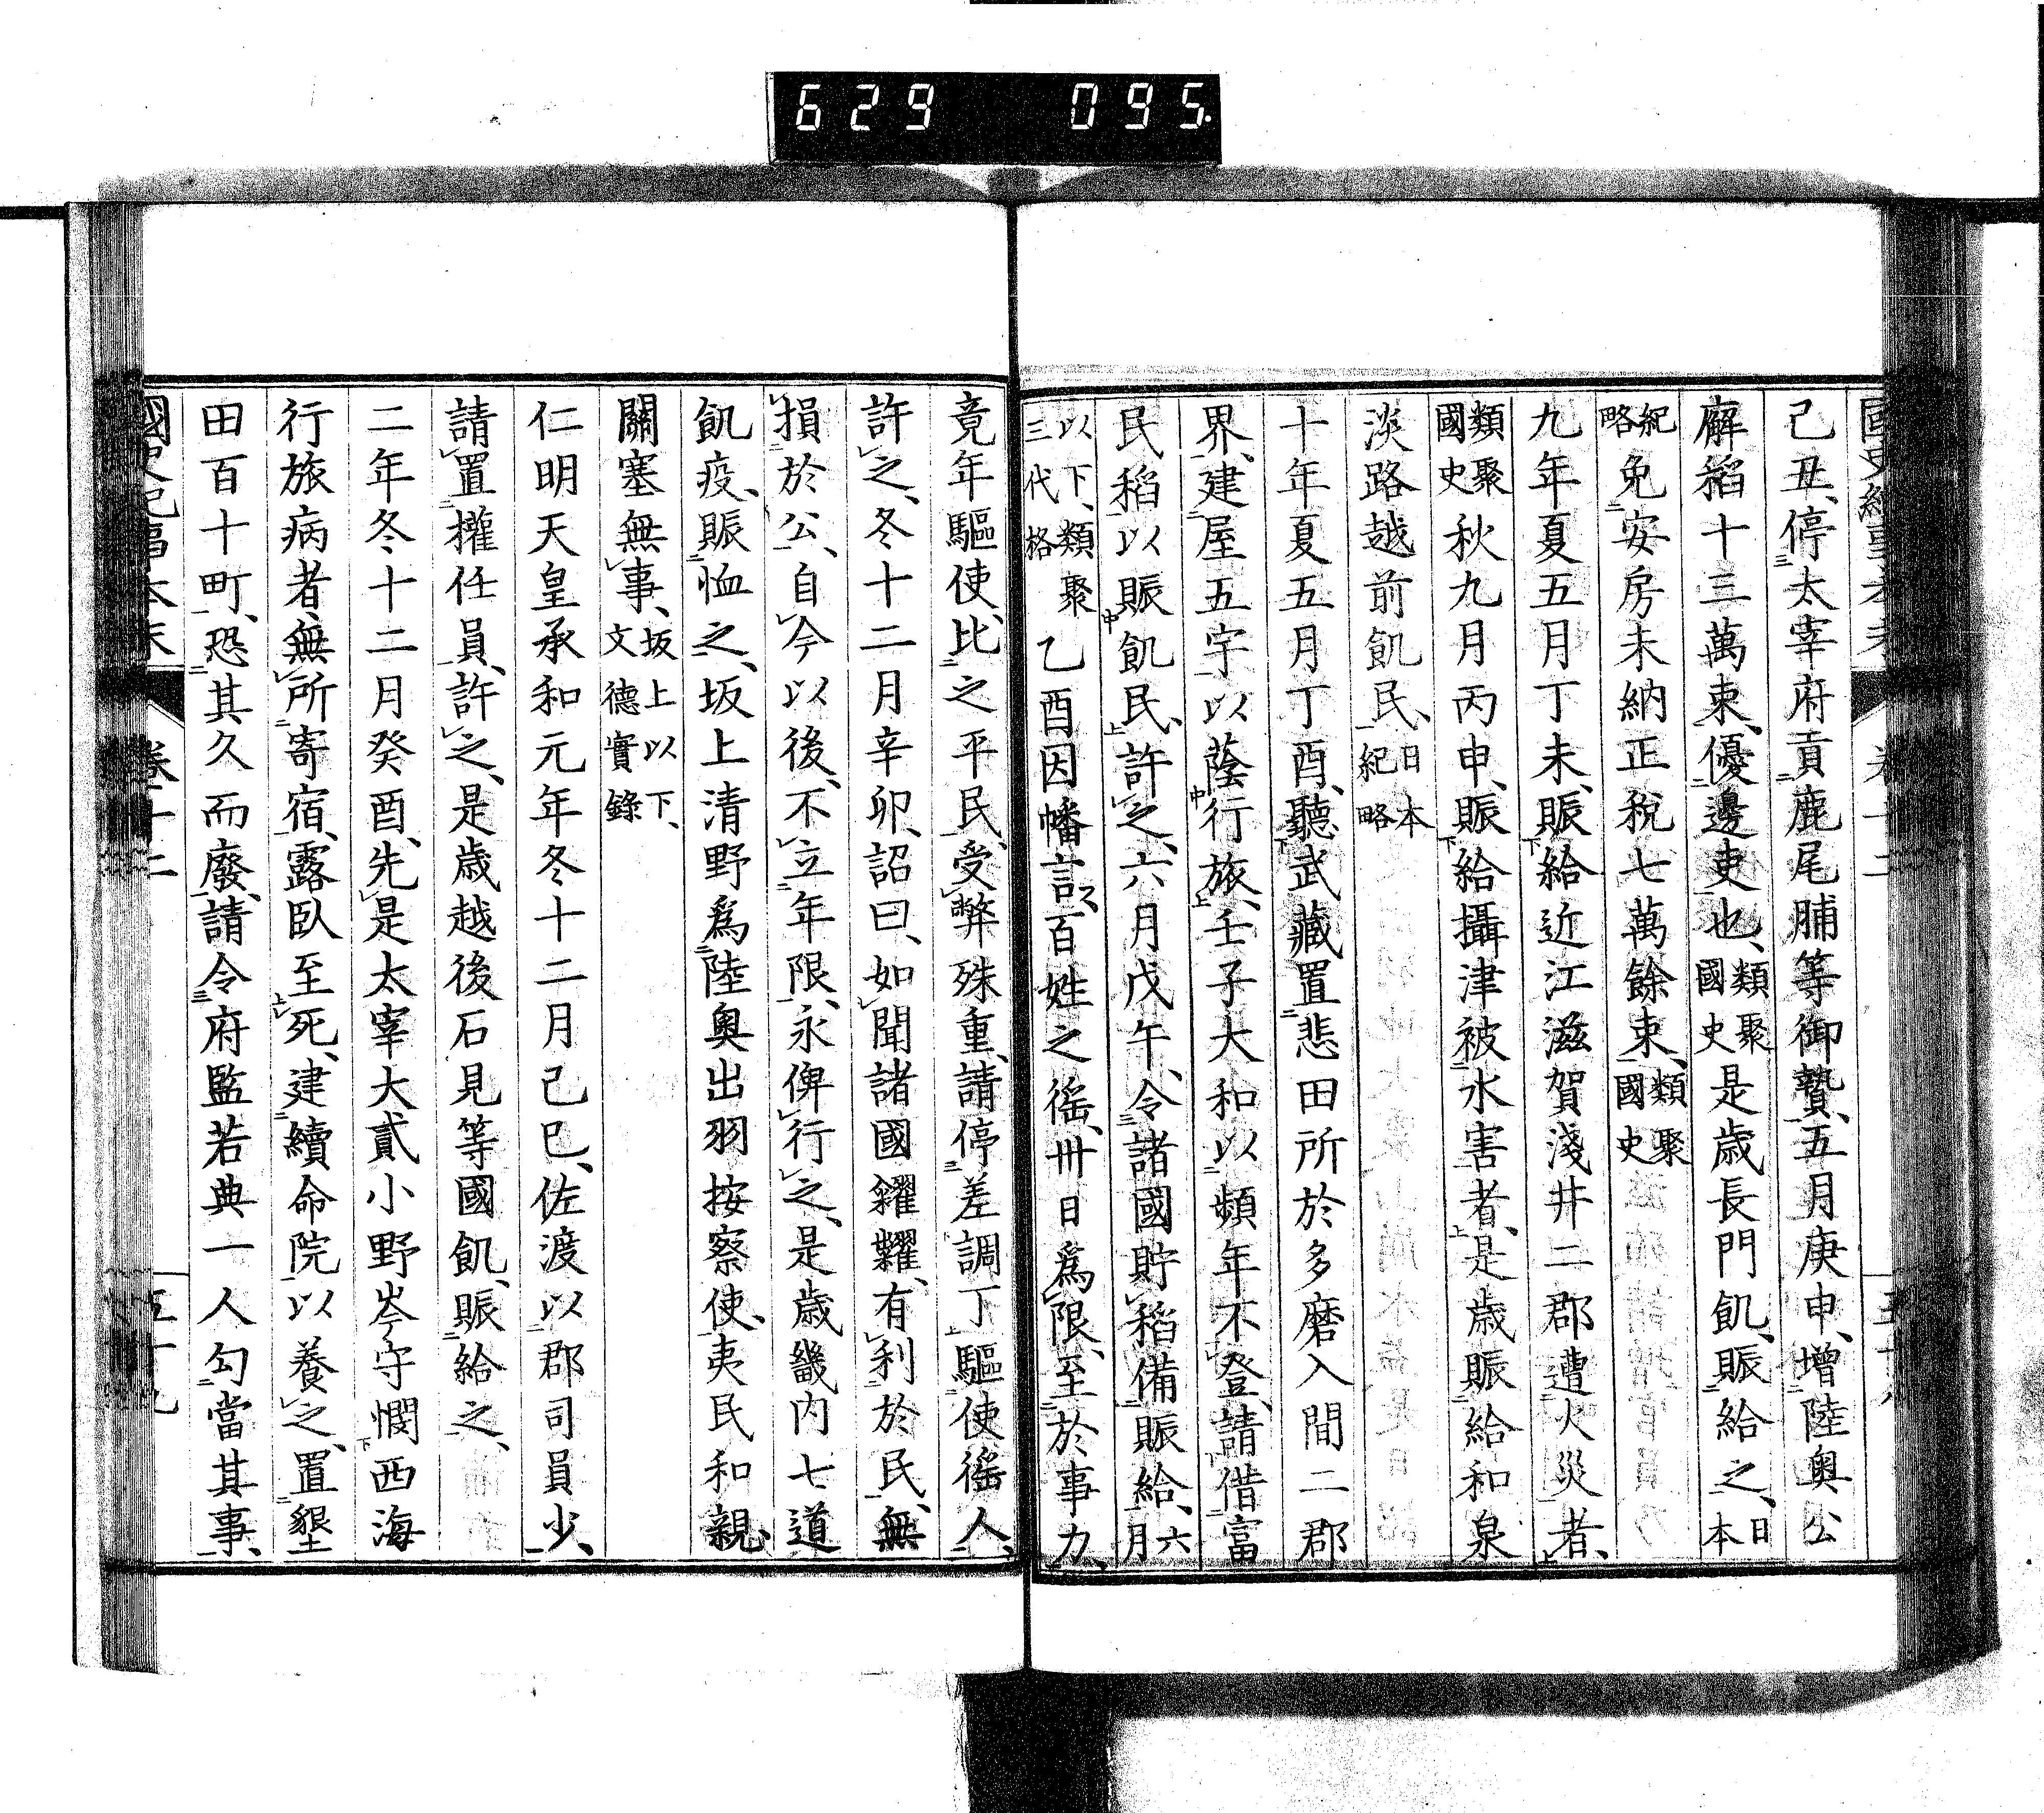 629 095
己丑、停太宰府貢鹿尾脯等御贄、五月庚申、增陸奧公
廨稻十三萬束、優邊吏也、類聚國史是歲長門飢、賑給之、日本
紀略免安房未納正稅七萬餘束、類聚國史
九年夏五月丁未、賑給近江滋賀淺井二郡遭火災者、
類聚國史秋九月丙申、賑給攝津被水害者、是歲賑給和泉
淡路越前飢民、日本紀略
十年夏五月丁酉、聽武藏置悲田所於多磨入間二郡
界、建屋五宇、以蔭行旅、壬子大和以頻年不登、請借富
民稻以賑飢民、許之、六月戊午、令諸國貯稻備賑給、六月
以下、類聚三代格乙酉因幡言、百姓之徭、卅日為限、至於事力、
竟年驅使、比之平民、受弊殊重、請停差調丁驅使徭人、
許之、冬十二月辛卯、詔曰、如聞諸國糴糶、有利於民、無
損於公、自今以後、不立年限、永俾行之、是歲畿内七道
飢疫、賑恤之、坂上清野為陸奧出羽按察使、夷民和親、
關塞無事、坂上以下、文德實錄
仁明天皇承和元年冬十二月己巳、佐渡以郡司員少、
請置權任員、許之、是歲越後石見等國飢、賑給之、
二年冬十二月癸酉、先是太宰大貳小野岑守憫西海
行旅病者、無所寄宿、露臥至死、建續命院以養之、置墾
田百十町、恐其久而廢、請令府監若典一人勾當其事、
國史紀事本末 卷十二 五十九